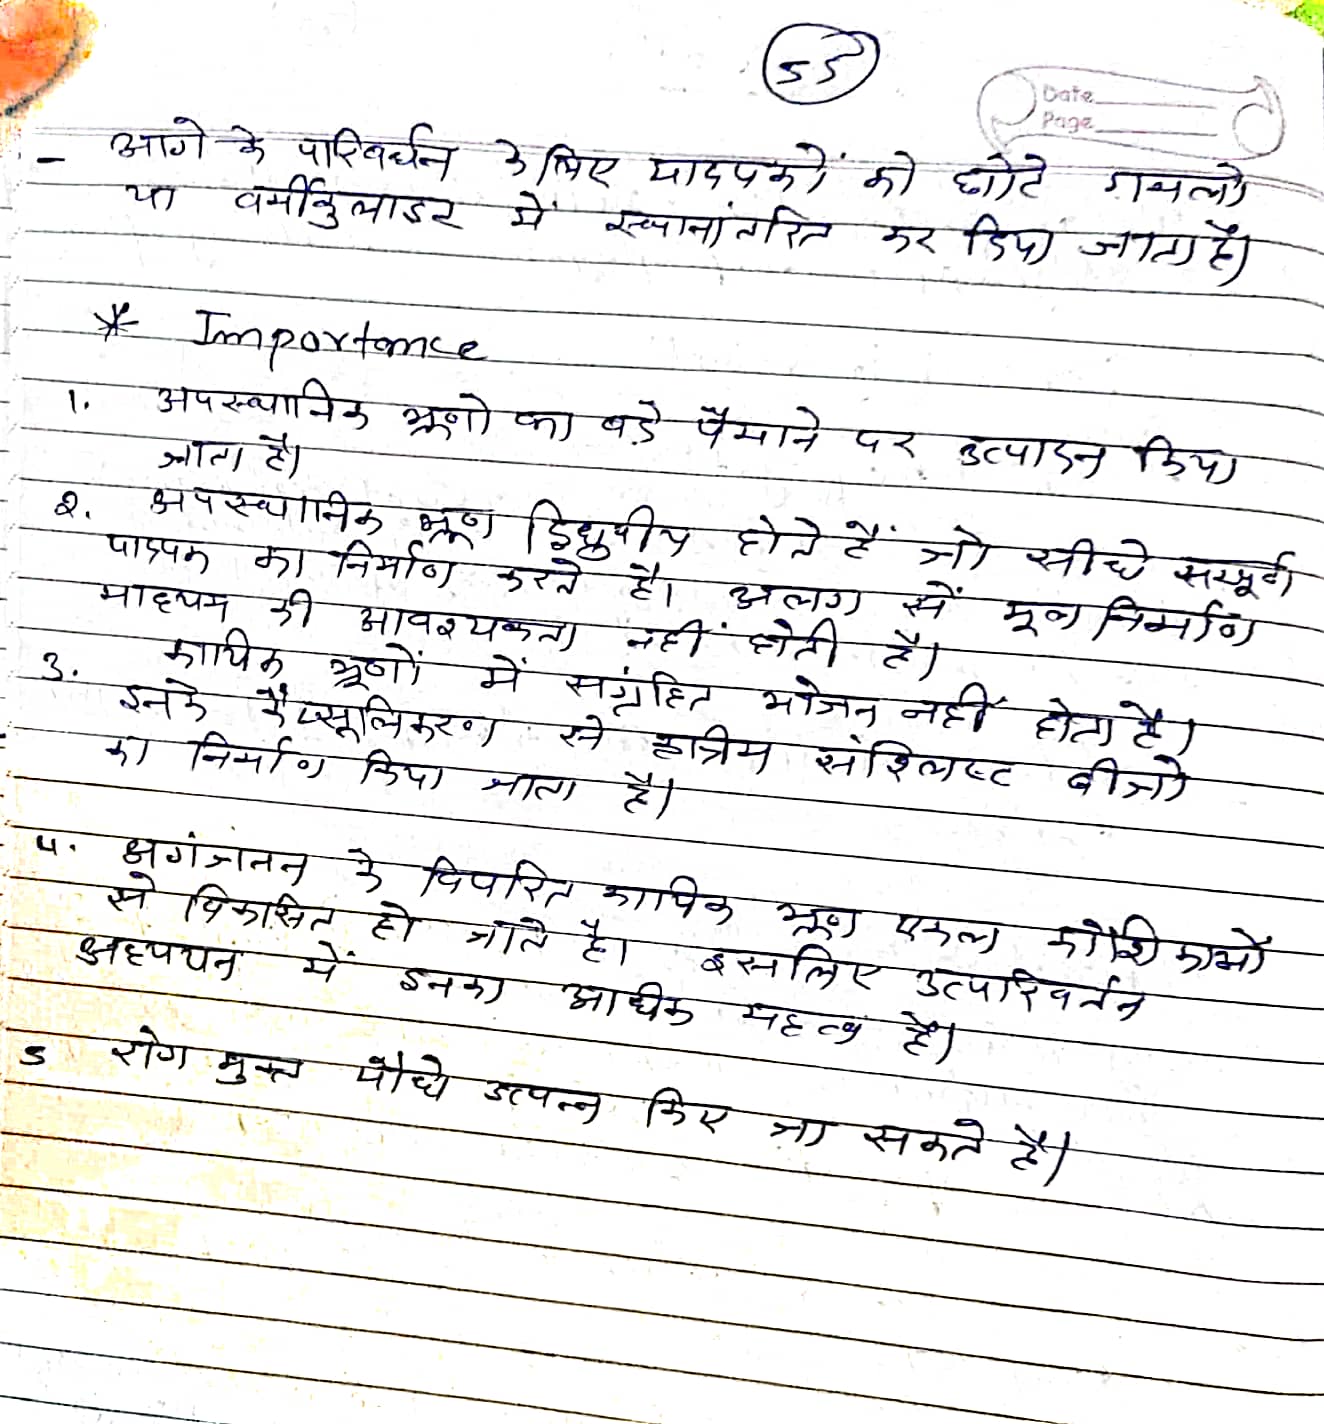 55
Date
Page
- आगे के परिवर्धन के लिए पादपकों को छोटे गमलो
या वर्मीकुलाइट में स्थानांतरित कर दिया जाता है।
* Importance
1. अपस्थानिक भ्रूणो का बड़े पैमाने पर उत्पादन किया
जाता है।
2. अपस्थानिक भ्रूण द्विध्रुवीय होते हैं जो सीधे सम्पूर्ण
पादपक का निर्माण करते है। अलग से मूल निर्माण
माध्यम की आवश्यकता नहीं होती है।
3. कायिक भ्रूणों में संग्रहित भोजन नहीं होता है।
इनके कैप्सूलिकरण से कृत्रिम संश्लिस्ट बीजो
का निर्माण किया जाता है।
4. अगंजनन के विपरित कायिक भ्रूण एकल कोशिकाओं
से विकसित हो जाते है। इसलिए उत्परिवर्तन
अध्ययन में इनका अधिक महत्व है।
5 रोग मुक्त पौधे उत्पन्न किए जा सकते है।